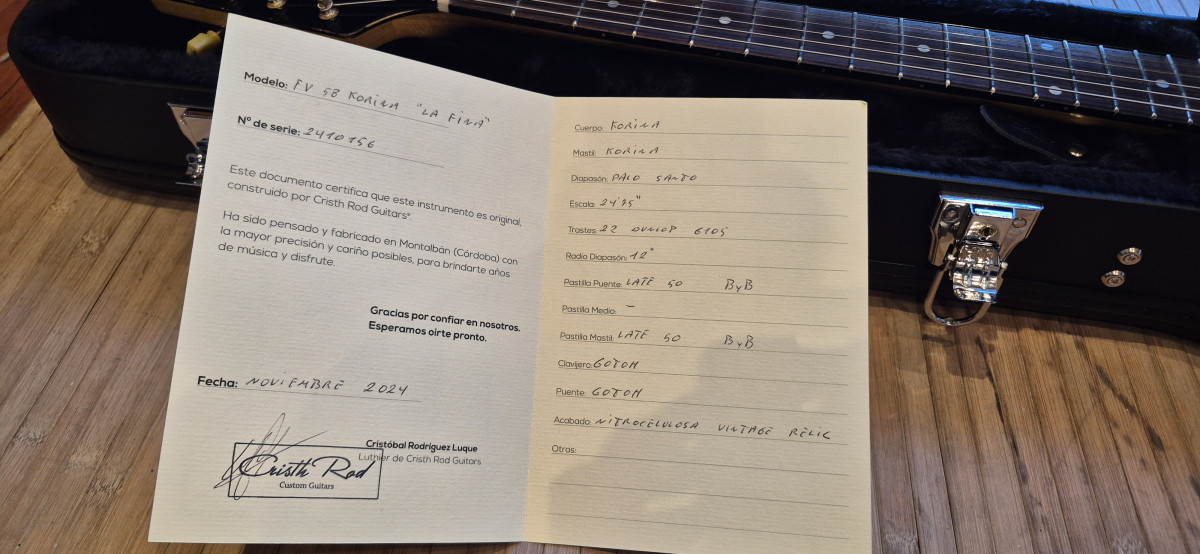 Modelo: FV 58 KORINA "LA FINA"
Nº de serie: 2410156
Este documento certifica que este instrumento es original,
construido por Cristh Rod Guitars®.
Ha sido pensado y fabricado en Montalbán (Córdoba) con
la mayor precisión y cariño posibles, para brindarte años
de música y disfrute.
Gracias por confiar en nosotros.
Esperamos oirte pronto.
Fecha: NOVIEMBRE 2024
Cristóbal Rodríguez Luque
Luthier de Cristh Rod Guitars
Cristh Rod
Custom Guitars
Cuerpo: KORINA
Mastil: KORINA
Diapasón: PALO SANTO
Escala: 24'75"
Trastes: 22 DUNLOP 6105
Radio Diapasón: 12"
Pastilla Puente: LATE 50 ByB
Pastilla Medio: -
Pastilla Mastil: LATE 50 ByB
Clavijero: GOTOH
Puente: GOTOH
Acabado: NITROCELULOSA VINTAGE RELIC
Otros: